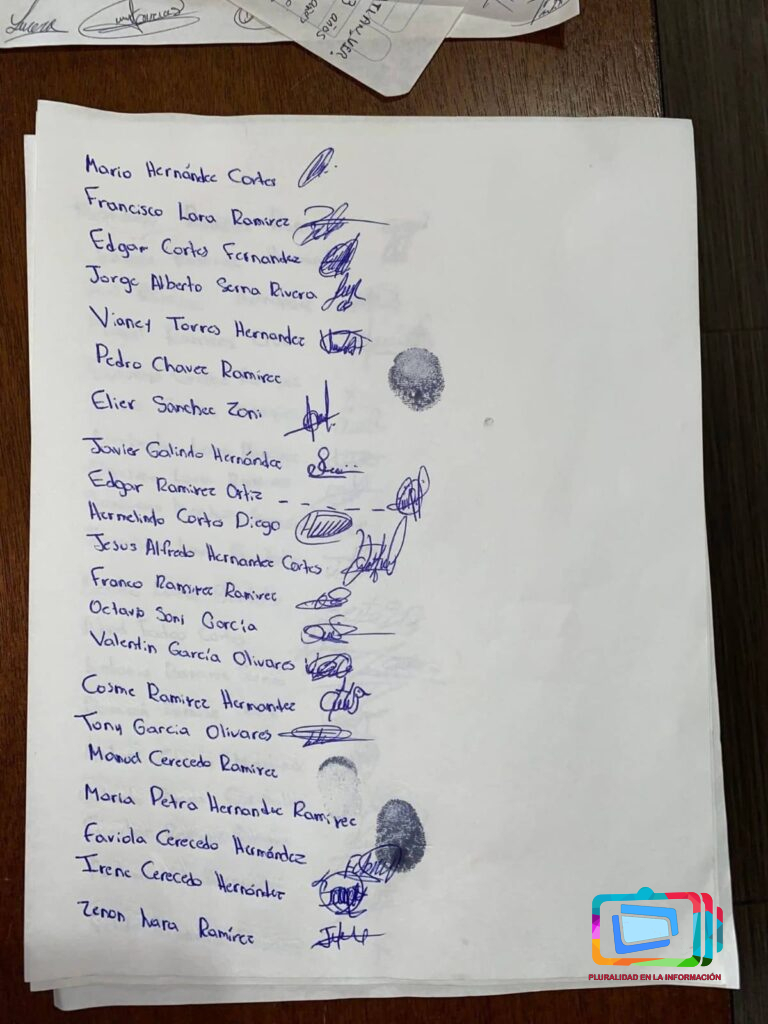 Lucena
3 años
TIAN, VER.
Mario Hernández Cortes
Francisco Lara Ramirez
Edgar Cortes Fernandez
Jorge Alberto Serna Rivera
Vianey Torres Hernandez
Pedro Chavez Ramirez
Elier Sánchez Zoni
Javier Galindo Hernández
Edgar Ramirez Ortiz
Hermelindo Cortes Diego
Jesus Alfredo Hernandez Cortes
Franco Ramirez Ramirez
Octavio Soni García
Valentin García Olivares
Cosme Ramirez Hernandez
Tony Garcia Olivares
Manuel Cerecedo Ramirez
Maria Petra Hernandez Ramirez
Faviola Cerecedo Hernández
Irene Cerecedo Hernández
Zenon Lara Ramírez
PLURALIDAD EN LA INFORMACIÓN